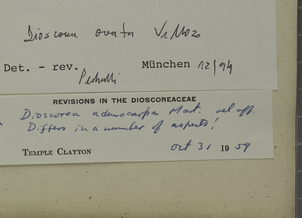 Dioscorea ovata Vellozo
Det. - rev. München 12/94
Pedralli
REVISIONS IN THE DIOSCOREACEAE
Dioscorea adenocarpa Mart. vel aff.
Differs in a number of aspects!
TEMPLE CLAYTON Oct 31 1959